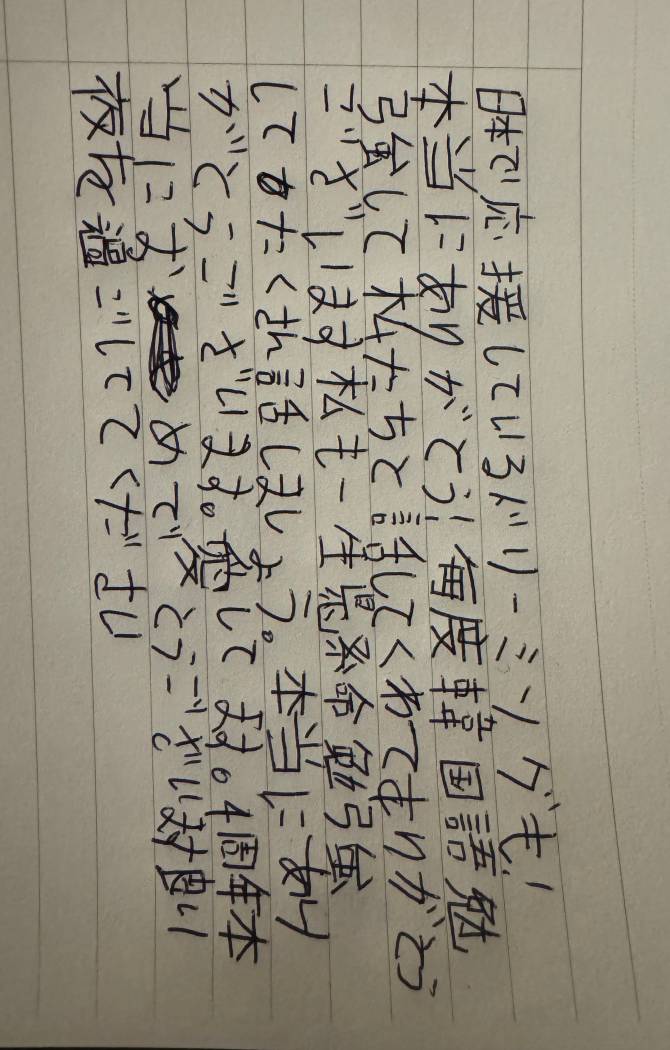 で応援しているドリーミングも!
本当にありがとう!毎度韓国語勉
強して私たちと話してくれてありがとう
ございます私も一生懸命勉強
して たくさん話しましょう。本当にあり
がとうございます。愛してます。4周年本
当におめでとうございます。良い
夜を過ごしてください